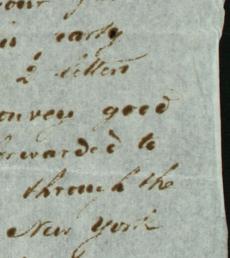 early
2 letters
convey good
forwarded to
through the
New York